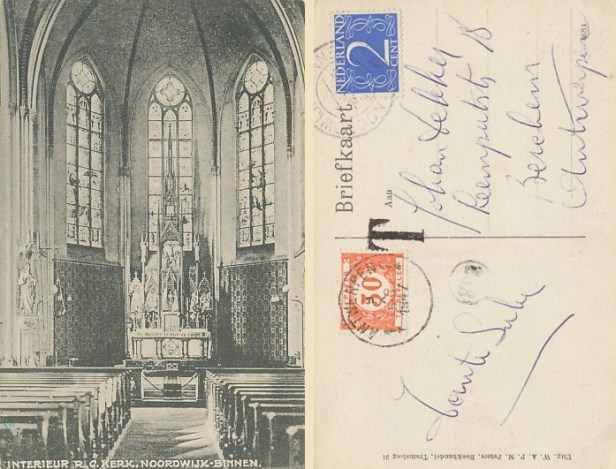 INTERIEUR R. C. KERK, NOORDWIJK-BINNEN.
NEDERLAND
2
CENT
Briefkaart
Aan
Johan Dekker
18
Berchem
Antwerpen
T
30
ANTWERPEN
Tante
Uitg. W. A. P. M. Peters, Boekhandel, Tramstaat 31